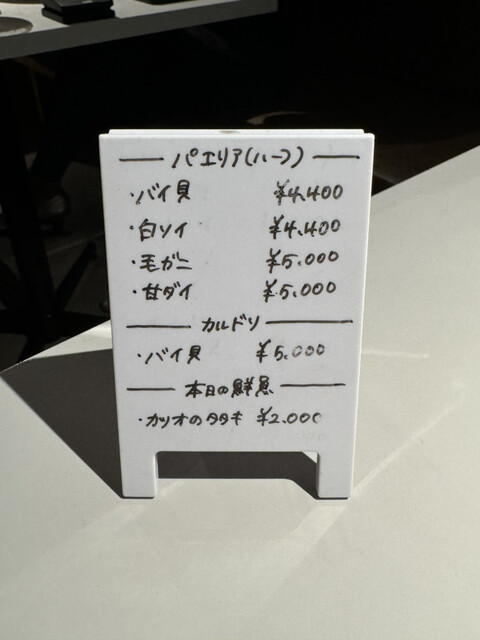 パエリア(ハーフ)
・バイ貝 ¥4,400
・白ソイ ¥4,400
・毛ガニ ¥5,000
・甘ダイ ¥5,000
カルドソ
・バイ貝 ¥5,000
本日の鮮魚
・カツオのタタキ ¥2,000